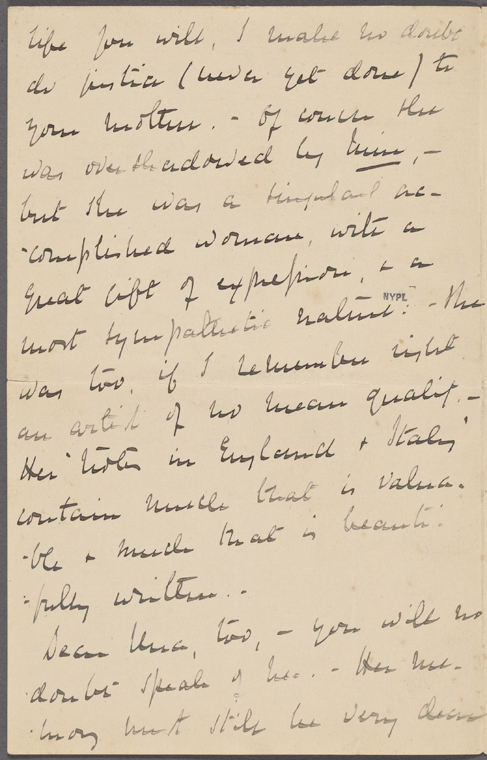 life you will, I make no doubt
do justice (never yet done) to
your mother. - Of course she
was overshadowed by him, -
but she was a singularly ac-
-complished woman, with a
great gift of expression, & a
most sympathetic nature. - She
NYPL
was too, if I remember right
an artist of no mean quality. -
Her "Notes in England & Italy"
contain much that is valua-
-ble & much that is beauti-
-fully written. -
Dear Una, too, - you will no
doubt speak of her. - Her me-
-mory must still be very dear